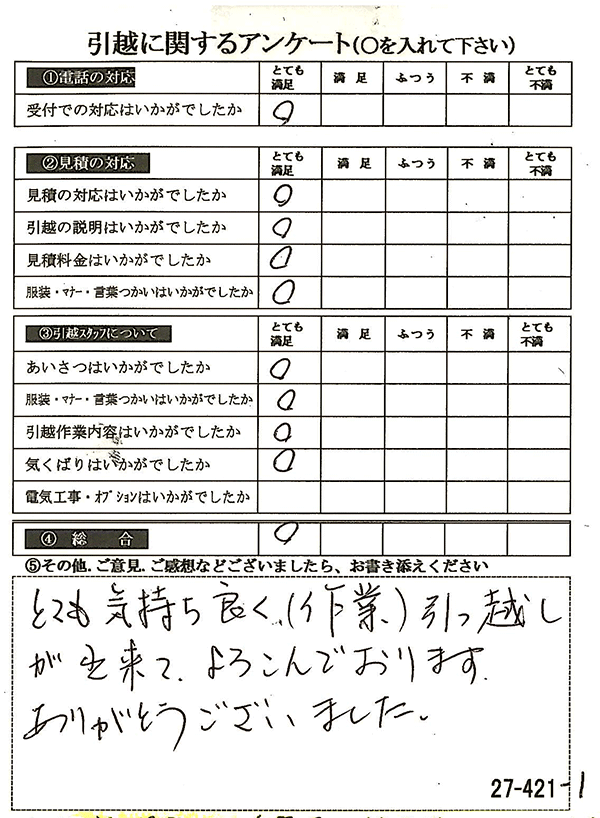 引越に関するアンケート(〇を入れて下さい)
①電話の対応 とても満足 満足 ふつう 不満 とても不満
受付での対応はいかがでしたか ○
②見積の対応 とても満足 満足 ふつう 不満 とても不満
見積の対応はいかがでしたか ○
引越の説明はいかがでしたか ○
見積料金はいかがでしたか ○
服装・マナー・言葉つかいはいかがでしたか ○
③引越スタッフについて とても満足 満足 ふつう 不満 とても不満
あいさつはいかがでしたか ○
服装・マナー・言葉つかいはいかがでしたか ○
引越作業内容はいかがでしたか ○
気くばりはいかがでしたか ○
電気工事・オプションはいかがでしたか
④ 総 合 ○
⑤その他.ご意見.ご感想などございましたら、お書き添えください
とても気持ち良く、(作業、)引っ越し
が出来て、よろこんでおります。
ありがとうございました。
27-421-1